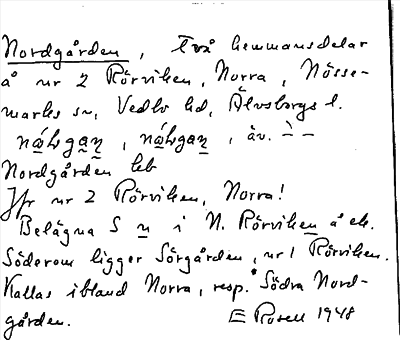 Nordgården, Två hemmansdelar
å nr 2 Rörviken, Norra, Nösse-
marks sn, Vedbo hd, Älvsborgs l.
, äv. ` – –
Nordgården leb
Jfr nr 2 Rörviken, Norra!
Belägna S n i N. Rörviken å ek.
Söderom ligger Sörgården, nr 1 Rörviken.
Kallas ibland Norra, resp. Södra Nord-
gården. E Rosell 1948